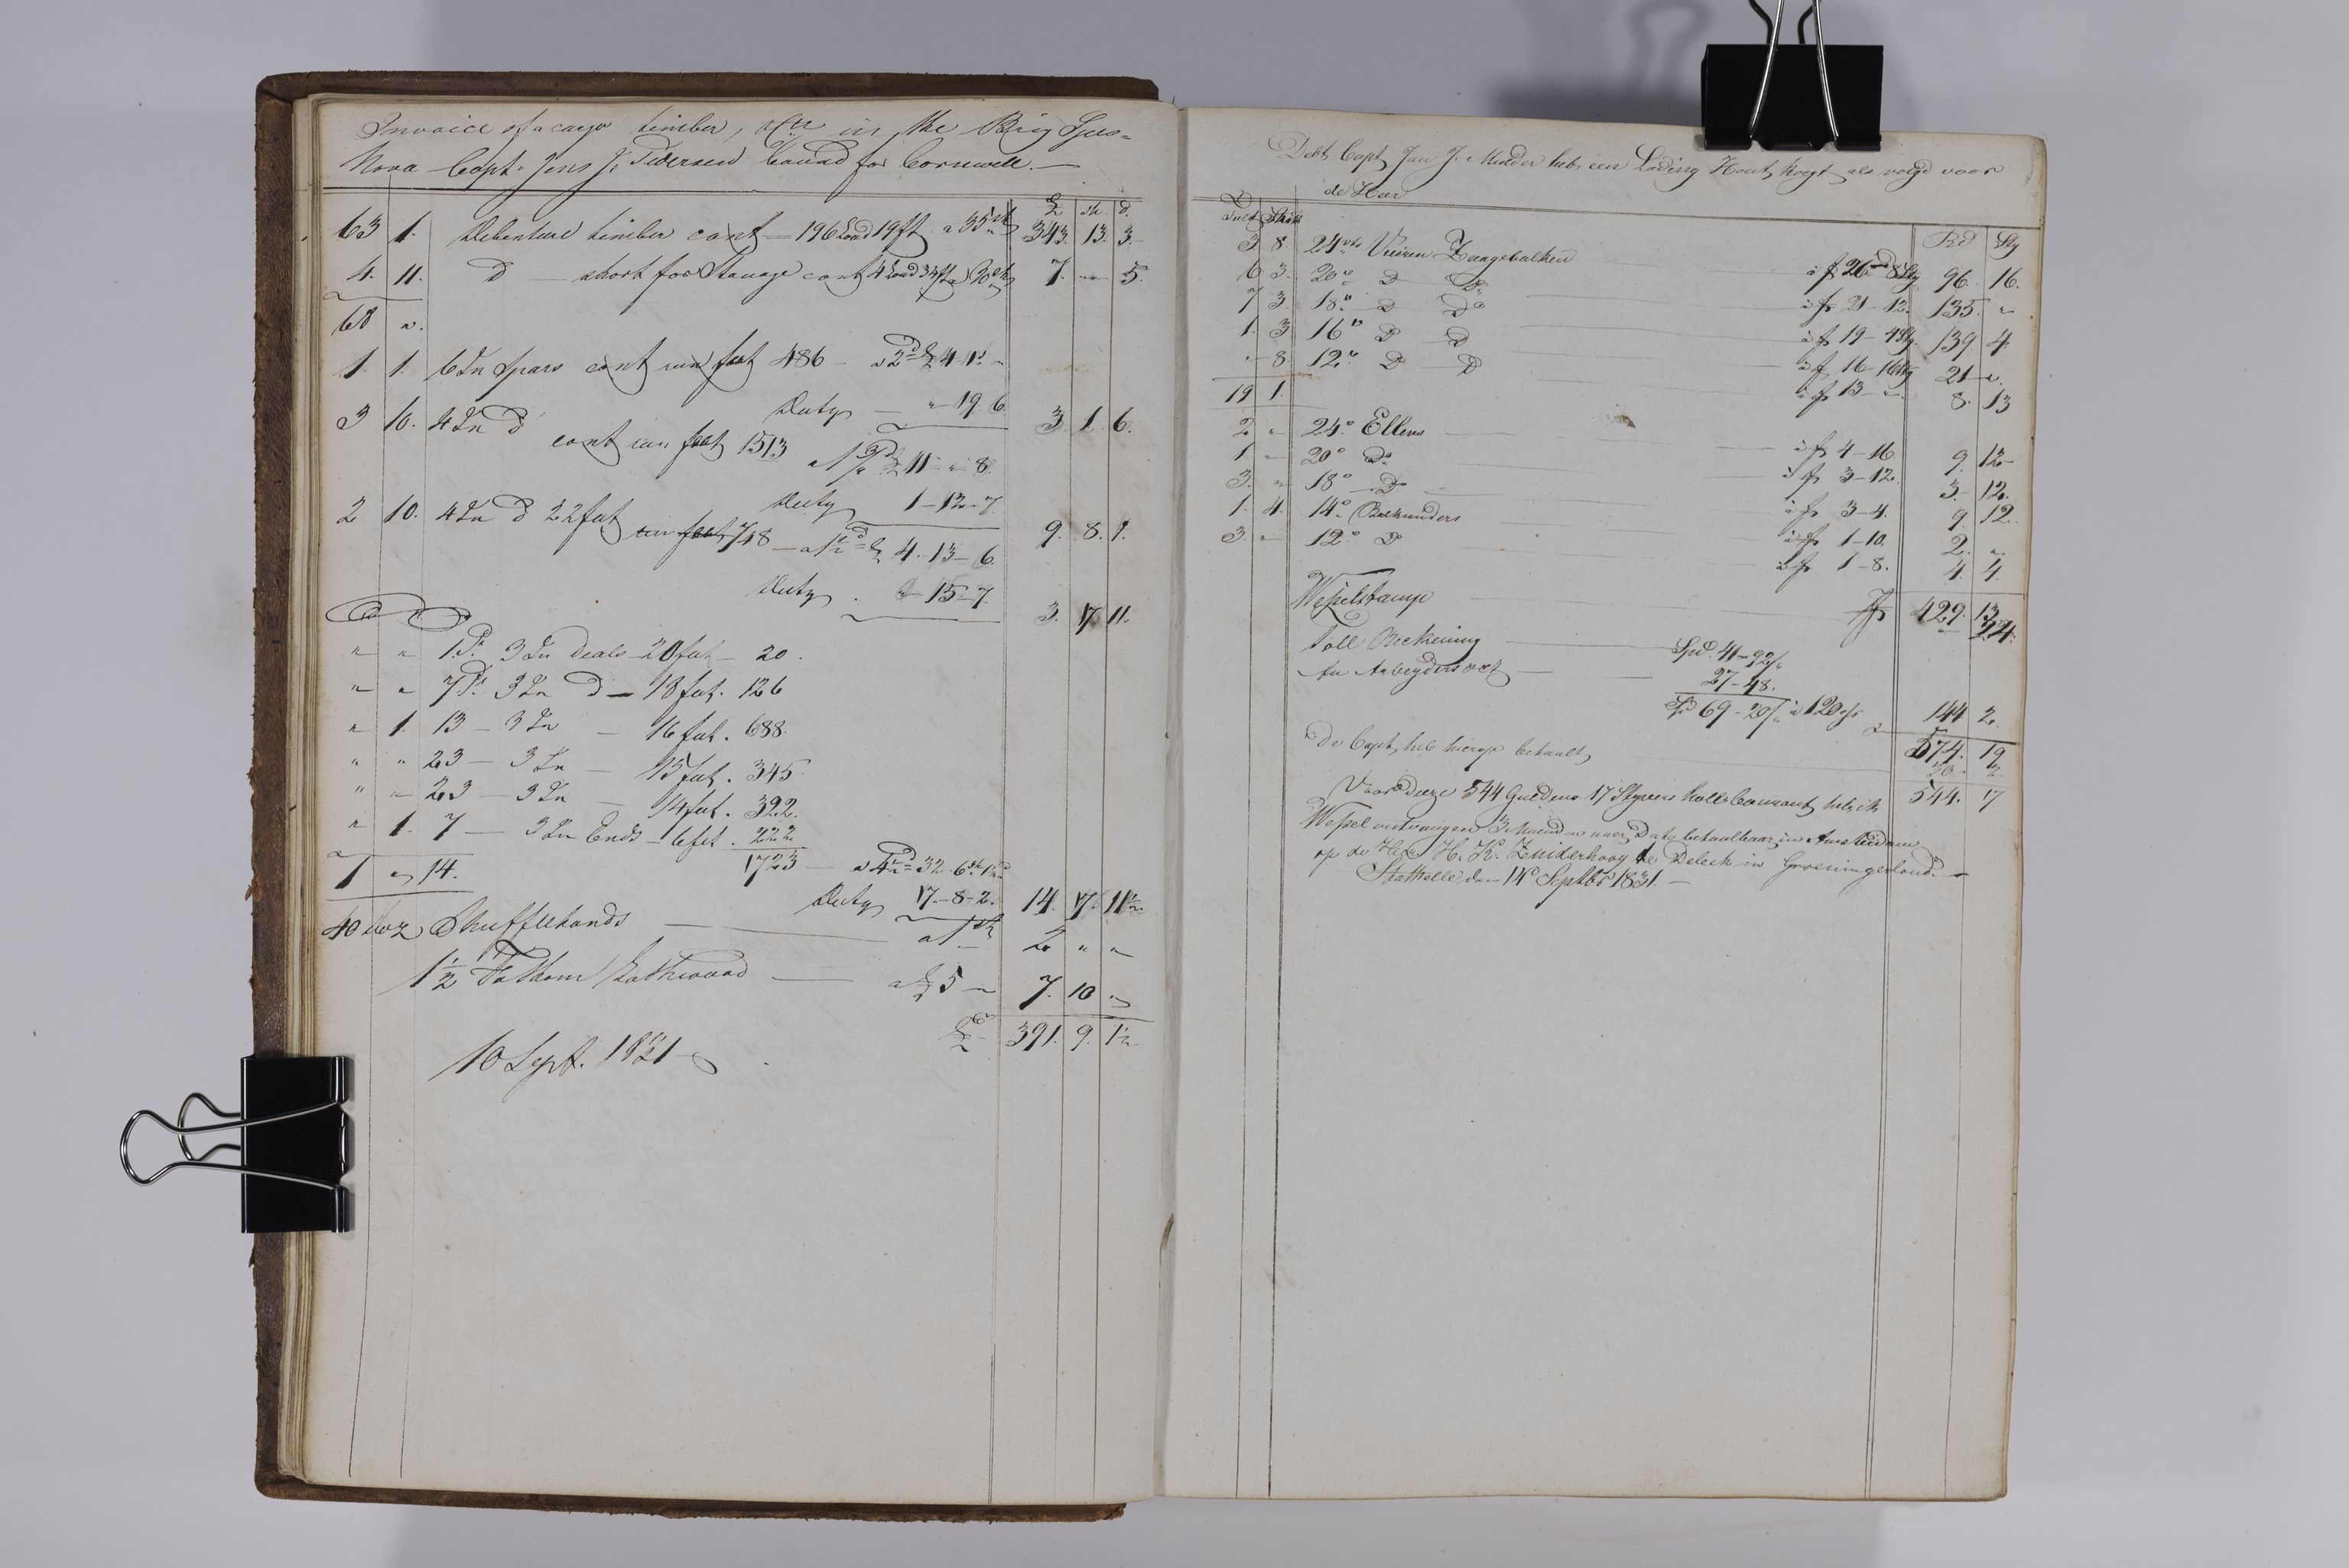 Invoice of a cargo timber, &ctr in the Brig Spes=
Nova Capt: Jens J. Pedersen bound for Cornwell. —
£ sh. d.
63 1. Debenture timber cont — 196 Load 19 ft a 35 sh 343. 13. 3.
4. 11. D — short for Stauage cont 4 Load 34 ft a 30 sh 7. — 5.
68 "
1. 1. 6 In Spars cont run foot 486 — a 2d £ 4. 1. —
Duty — " 19. 6. 3. 1. 6.
3 10. 4 In d
cont run foot 1513
£ 11 " 8.
Duty 1-12-7. 9. 8. 1.
2 10. 4 In d 22 feet
run foot 748 — a 1½d £ 4. 13 — 6.
Duty . 15-7. 3. 17 11.
" " 1 P. 3 In deals — 20 feet — 20.
" " 7 P. 3 In d — 18 feet. 126
" 1. 13 — 3 In — 16 feet. 688.
" " 23 — 3 In — 15 feet. 345.
" " 23 — 3 In — 14 feet. 322.
" 1. 7 — 3 In Ends — 6 feet. 222
1 " 14. 1723 — a 4½d = 32. 6 sh 1½
Duty 17-8-2. 14. 17. 11½
40 doz Shufflehands — a 1 sh 2 " "
1½ Fathom Lathwood — a £ 5 — 7. 10 "
£ 391. 9. 1½
10 Sept. 1831
Debt Capt Jan J. Mulder heb een Lading Hout kogt als volgd voor
de Heer
3 8. 24 Vuiren Zaagebalken a f 26 8 Stg 96. 16.
6 3. 20" D D a f 21-12. 135. "
7 3. 18" D Do a f 19-4 Stg. 139 4.
1. 3 16" D D a f 16-16 Stg 21 "
" 8. 12" D D a f 13 — " 8. 13
19 1.
2 " 24° Ellens a f 4-16. 9. 12
1 " 20° Do a f 3-12. 3. 12.
3. " 18° D a f 3-4. 9. 12
1. 4. 14° a f 1-10. 2. "
3. " 12° D a f 1-8. 4. 4.
Wesselstamp f 429. 13
Toll Reekening Spd. 41-92/
An Arbeyders 27-48.
Sp 69-20/ a 120 f 144 2.
574. 19
de Capt heb hierop betaalt 30. 2
544. 17
Voor deeze 544 Guldens 17 Styvers holl. Courant heb ik
Wessel ontvangen 3 Maanden naer Dato betaalbaar in Amsterdam
op de Heer H. K. Zuiderhoog te Delsek in Groeningerland. —
Stathelle den 14de Septbr 1831. —